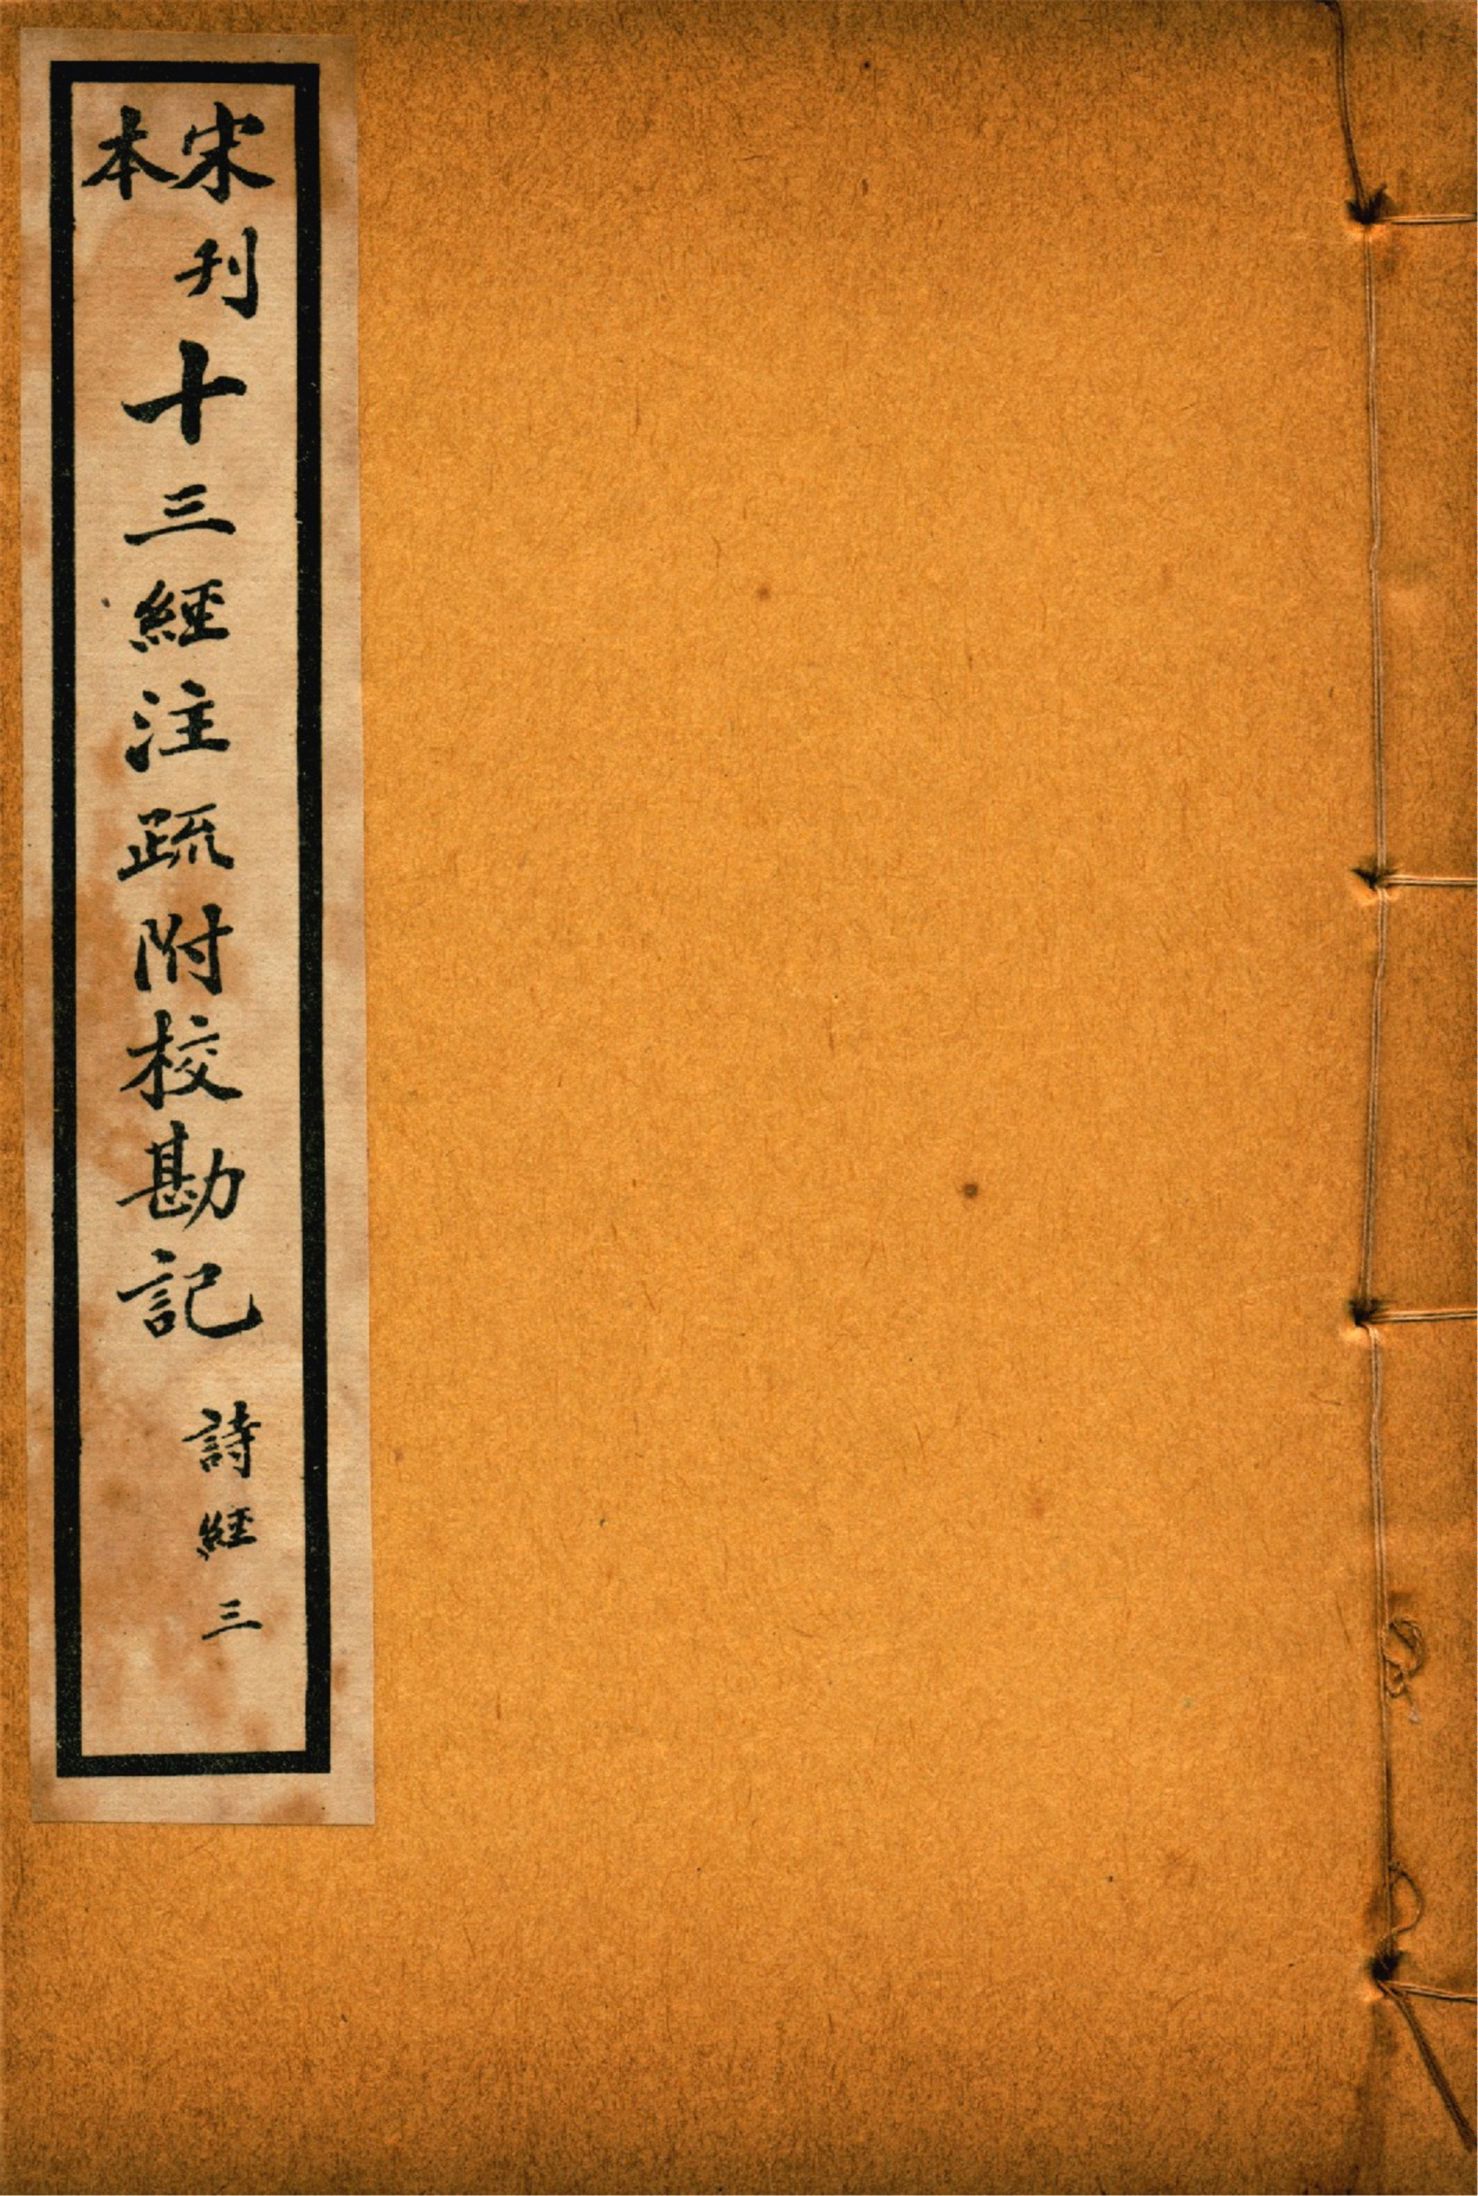 宋刊
本
十三經注疏附校勘記
詩經三